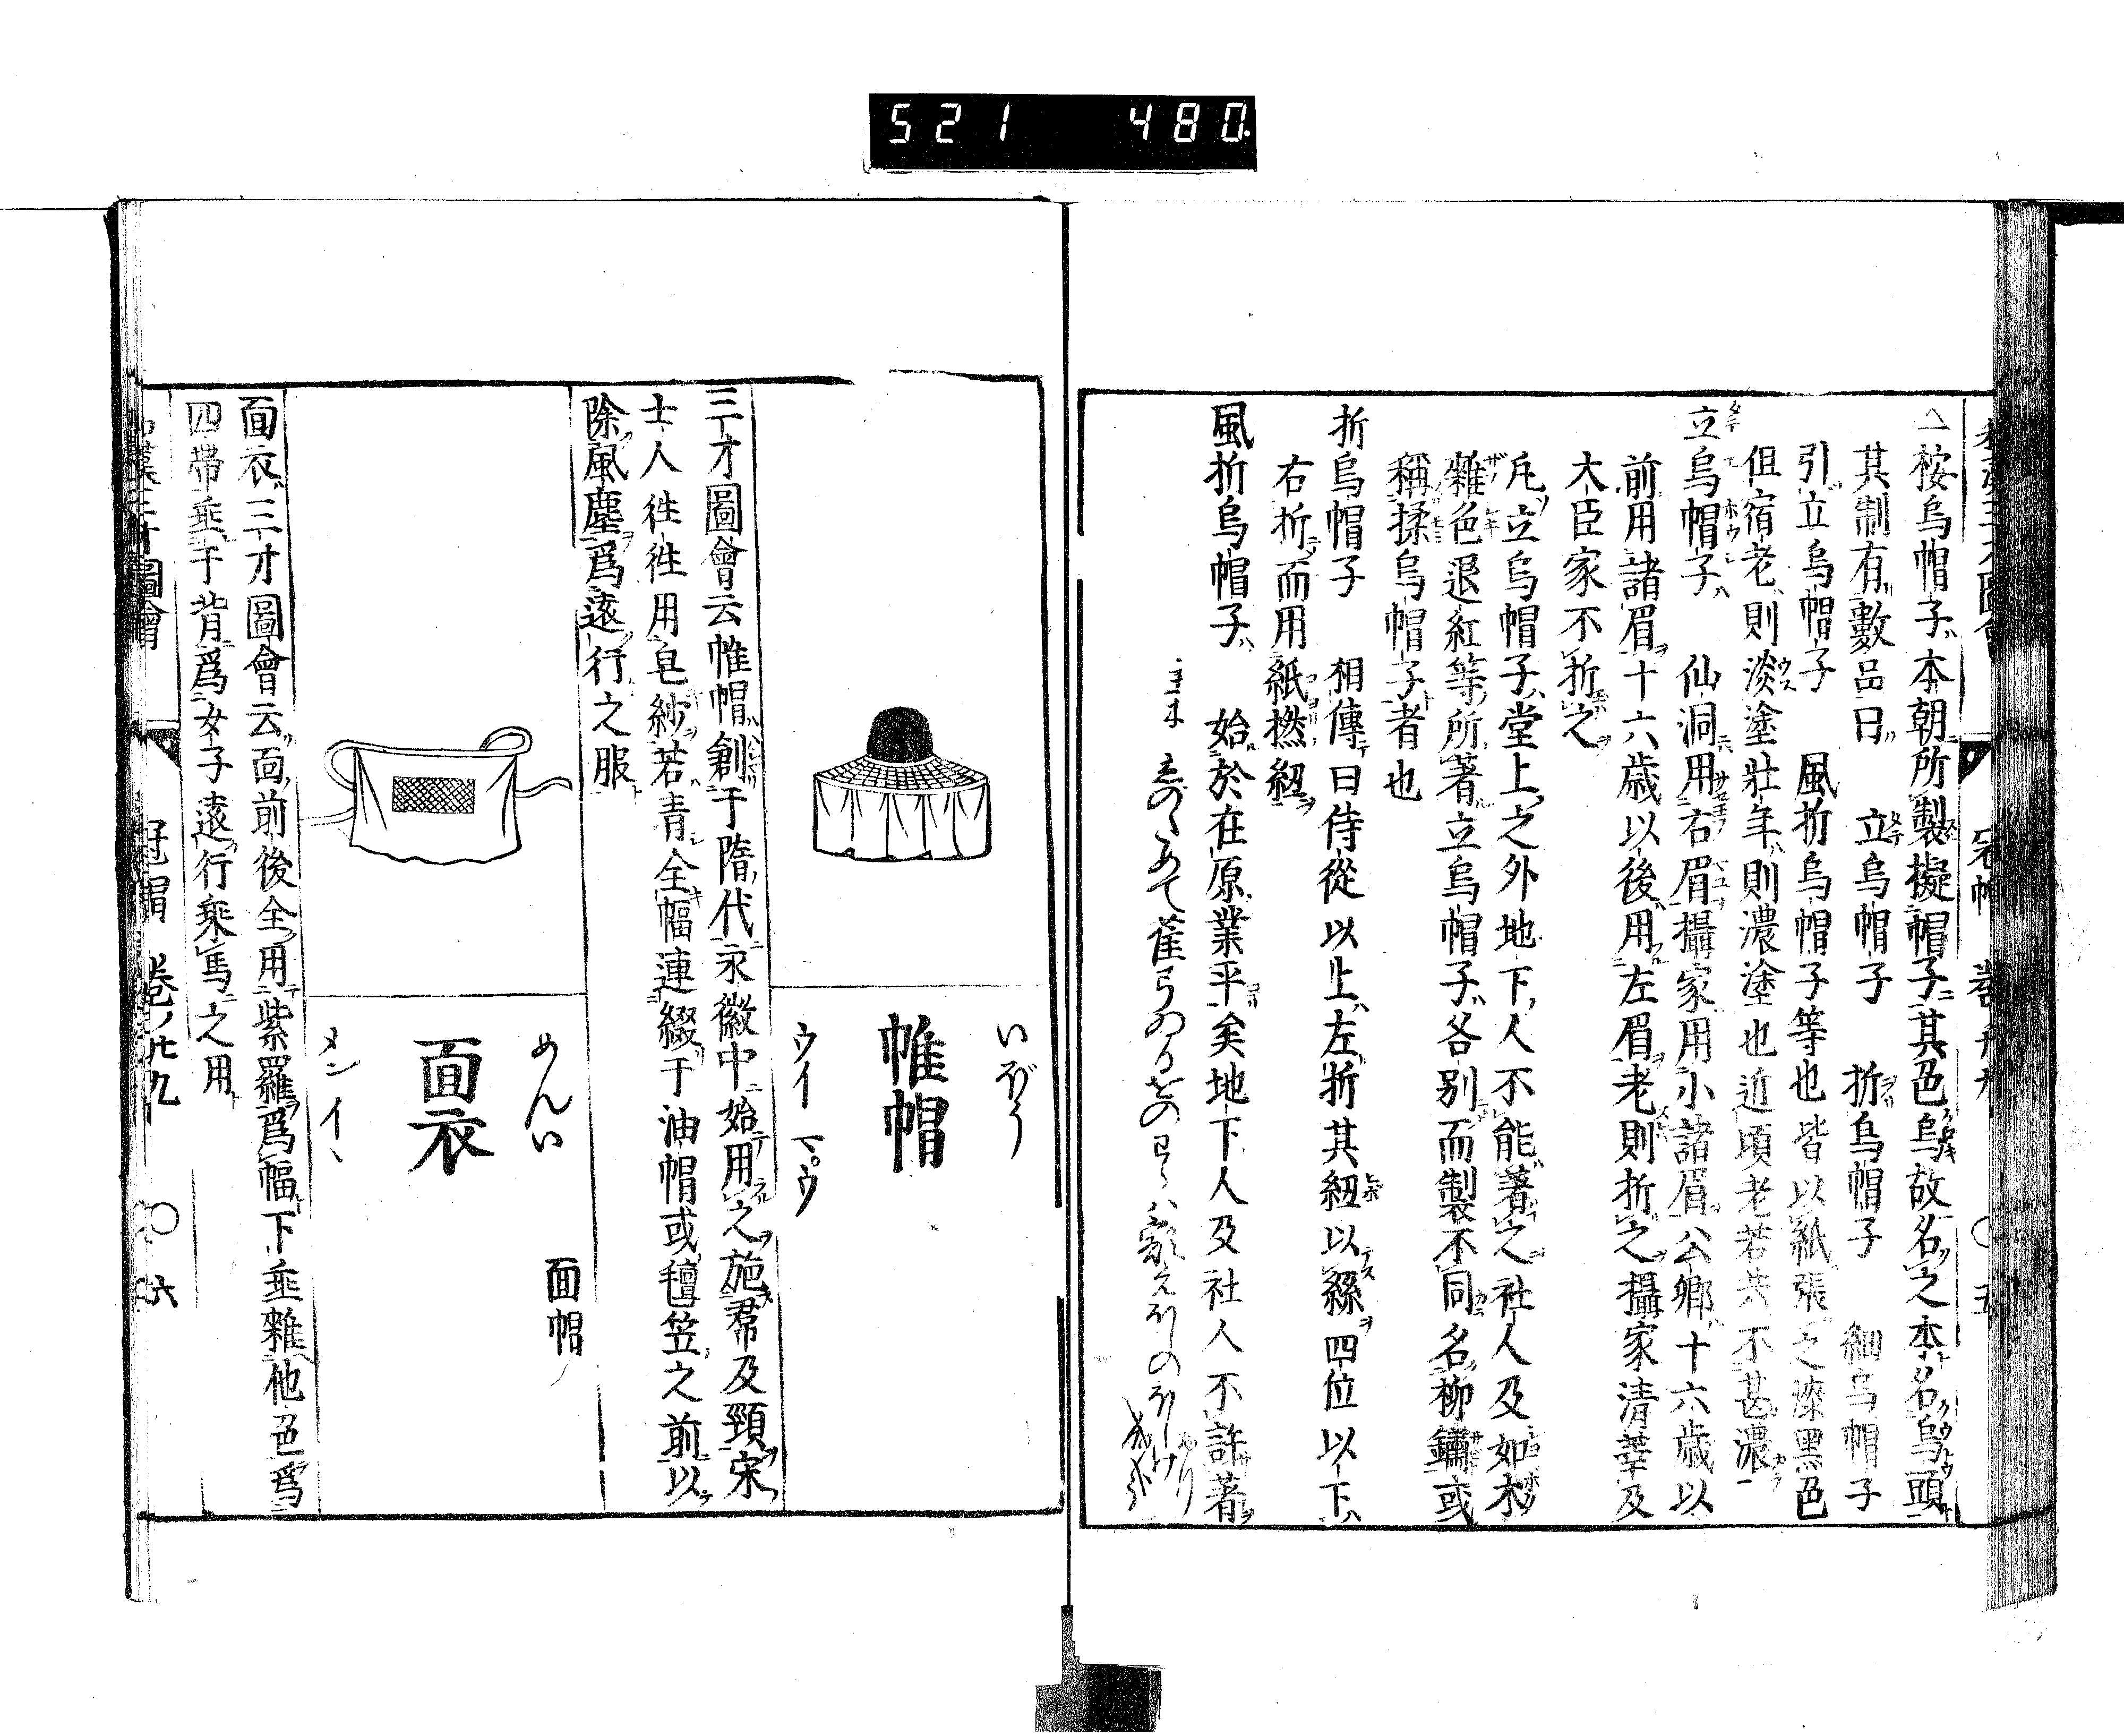 521 480
△桉烏帽子本朝所製擬帽子其色烏故名之本名烏頭
其制有數品曰 立烏帽子 折烏帽子 細烏帽子
引立烏帽子 風折烏帽子等也皆以紙張之漆黒色
但宿老則淡塗壮年則濃塗也近頃老若共不甚濃
立烏帽子 仙洞用右眉攝家用小諸眉公卿十六歳以
前用諸眉十六歳以後用左眉老則折之攝家清華及
大臣家不折之
凡立烏帽子堂上之外地下人不能著之社人及如木
雜色退紅等所著立烏帽子各别而製不同名柳鏽或
稱揉烏帽子者也
折烏帽子 相傳曰侍從以上左折其紐以絲四位以下
右折而用紙撚紐
風折烏帽子 始於在原業平矣地下人及社人不許著
三才圖會云帷帽創于隋代永徽中始用之施帬及頸宋
士人往往用皂紗若青全幅連綴于油帽或氊笠之前以
除風塵爲遠行之服
いぼう
帷帽
ウイ マ゜ウ
めんい
面衣
メン イヽ
面帽
面衣三才圖會云面前後全用紫羅爲幅下垂雜他色爲
四帶垂于背爲女子遠行乘馬之用
三才圖會 冠帽 卷ノ廿九 〇 六